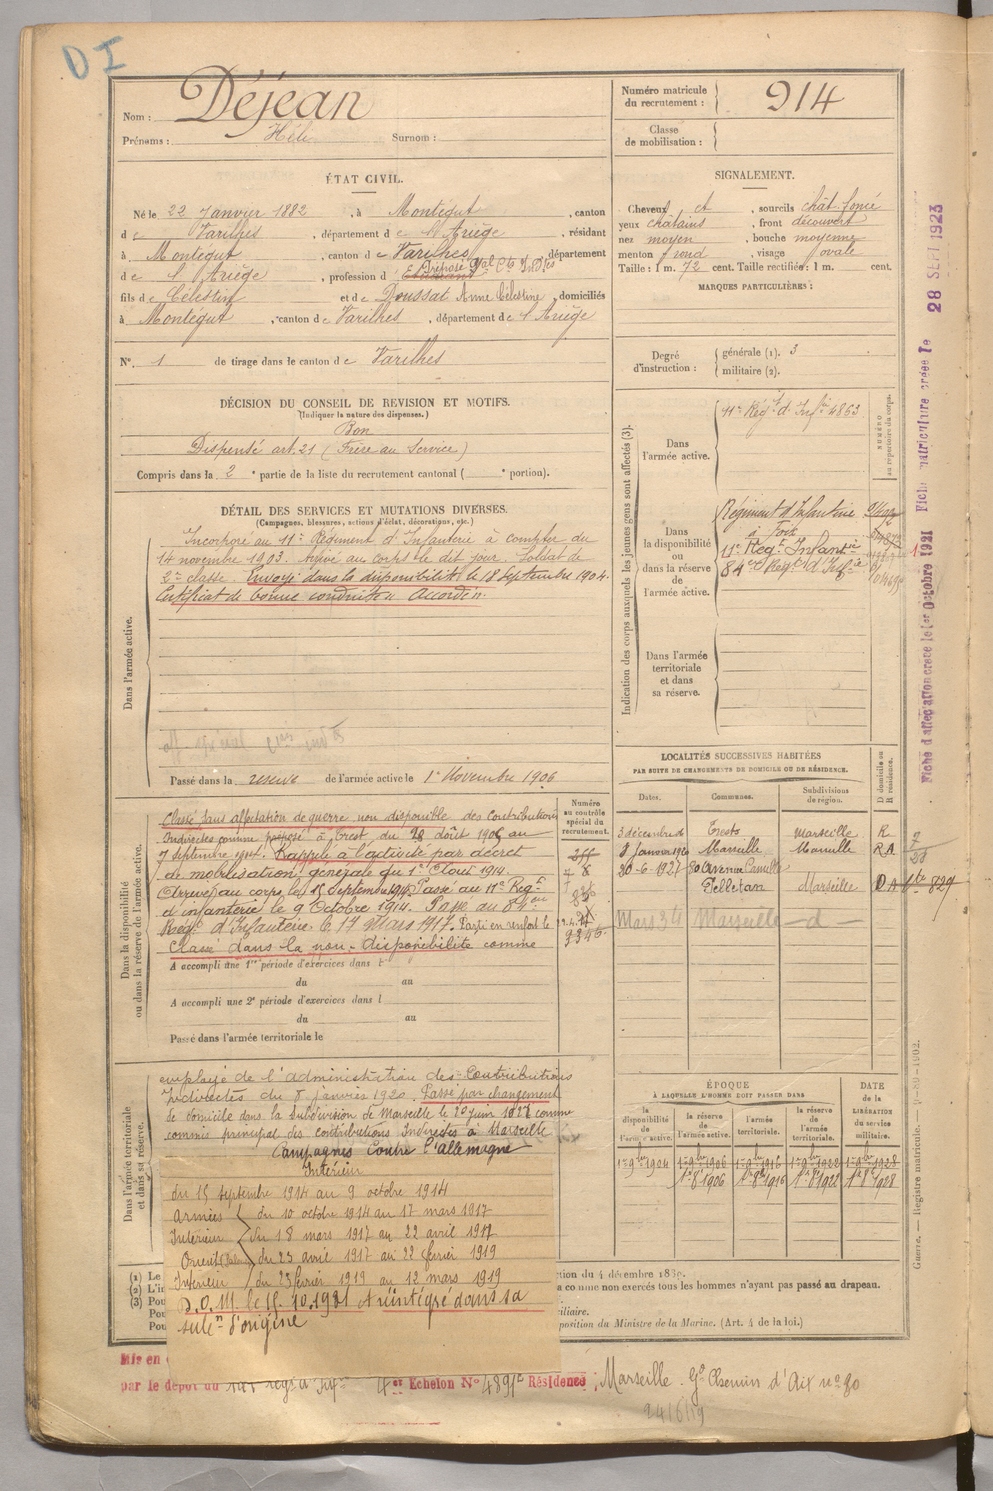 DI
Nom : Déjean
Prénoms : Héli Surnom :
Numéro matricule du recrutement : 914
Classe de mobilisation :
ÉTAT CIVIL.
Né le 22 Janvier 1882, à Montégut, canton
de Varilhes, département de l'Ariège, résidant
à Montégut, canton de Varilhes, département
de l'Ariège, profession d
fils de Célestin et de Doussat Anne Célestine, domiciliés
à Montégut, canton de Varilhes, département de l'Ariège
N° 1 de tirage dans le canton de Varilhes
SIGNALEMENT.
Cheveux et, sourcils chât. foncé
yeux châtains, front découvert
nez moyen, bouche moyenne
menton rond, visage ovale
Taille : 1 m. 72 cent. Taille rectifiée : 1 m. cent.
MARQUES PARTICULIÈRES :
Degré d'instruction : générale (1). 3
militaire (2).
DÉCISION DU CONSEIL DE REVISION ET MOTIFS.
(Indiquer la nature des dispenses.)
Bon
Dispensé art. 21 (Frère au Service)
Compris dans la 2e partie de la liste du recrutement cantonal ( e portion).
DÉTAIL DES SERVICES ET MUTATIONS DIVERSES.
(Campagnes, blessures, actions d'éclat, décorations, etc.)
Dans l'armée active.
Incorporé au 11e Régiment d'Infanterie à compter du
14 novembre 1903. Arrivé au corps le dit jour. Soldat de
2e classe. Envoyé dans la disponibilité le 18 Septembre 1904.
Certificat de bonne conduite "Accordé".
Passé dans la réserve de l'armée active le 1er Novembre 1906
Indication des corps auxquels les jeunes gens sont affectés (3).
Dans l'armée active.
11e Régt d'Infie 4853
NUMÉRO au répertoire du corps.
Dans la disponibilité ou dans la réserve de l'armée active.
Régiment d'Infanterie
à Foix
11e Régt Infantie
84e Régt d'Infie
Dans l'armée territoriale et dans sa réserve.
LOCALITÉS SUCCESSIVES HABITÉES
PAR SUITE DE CHANGEMENTS DE DOMICILE OU DE RÉSIDENCE.
Dates. Communes. Subdivisions de région. D domicile ou R résidence.
3 décembre Trets Marseille R
8 Janvier 1920 Marseille Marseille RA
20-6-1927 80 Avenue Camille
Pelletan Marseille D
Mars 34 Marseille - d -
Dans la disponibilité ou dans la réserve de l'armée active.
Numéro au contrôle spécial du recrutement.
Classé sans affectation de guerre non disponible des Contributions
Indirectes comme préposé à Trets, du août 1906 au
7 septembre. Rappelé à l'activité par décret
de mobilisation générale du 1er Août 1914.
Arrivé au corps le 15 Septembre 1914 Passé au 11e Régt
d'infanterie le 9 Octobre 1914. Passé au 84e
Régt d'Infanterie le 17 Mars 1917. Parti en renfort le
Classé dans la non-disponibilité comme
A accompli une 1re période d'exercices dans l
du au
A accompli une 2e période d'exercices dans l
du au
Passé dans l'armée territoriale le
Dans l'armée territoriale et dans sa réserve.
employé de l'administration des Contributions
Indirectes du 8 janvier 1920. Passé par changement
de domicile dans la Subdivision de Marseille le 20 juin 1927 comme
commis principal des contributions Indirectes à Marseille
Campagnes Contre l'allemagne
Intérieur
du 15 septembre 1914 au 9 octobre 1914
Armées du 10 octobre 1914 au 17 mars 1917
Intérieur du 18 mars 1917 au 22 avril 1917
Orient du 23 avril 1917 au 22 février 1919
Intérieur du 23 février 1919 au 12 mars 1919
D.O.M. le 15.10.1921 et réintégré dans sa
subon d'origine
ÉPOQUE
À LAQUELLE L'HOMME DOIT PASSER DANS
la disponibilité de l'armée active. la réserve de l'armée active. l'armée territoriale. la réserve de l'armée territoriale.
DATE de la LIBÉRATION du service militaire.
1er 9bre 1904 1er 9bre 1906 1er 9bre 1916 1er 9bre 1922 1er 9bre 1928
1er 8 1906 1er 8 1916 1er 8 1922 1er 8 1928
(1) Le
(2) L'in
(3) Pou
Pou
Pou
a comme non exercés tous les hommes n'ayant pas passé au drapeau.
position du Ministre de la Marine. (Art. 4 de la loi.)
Mis en
par le dépôt du 4er Echelon N° 4891 Résidence : Marseille. Gd Chemin d'Aix n° 80
24/6/19
Fiche d'affectation créée le 1er Octobre 1921
Fiche matriculaire créée le 28 SEPT 1923
Guerre. — Registre matricule.